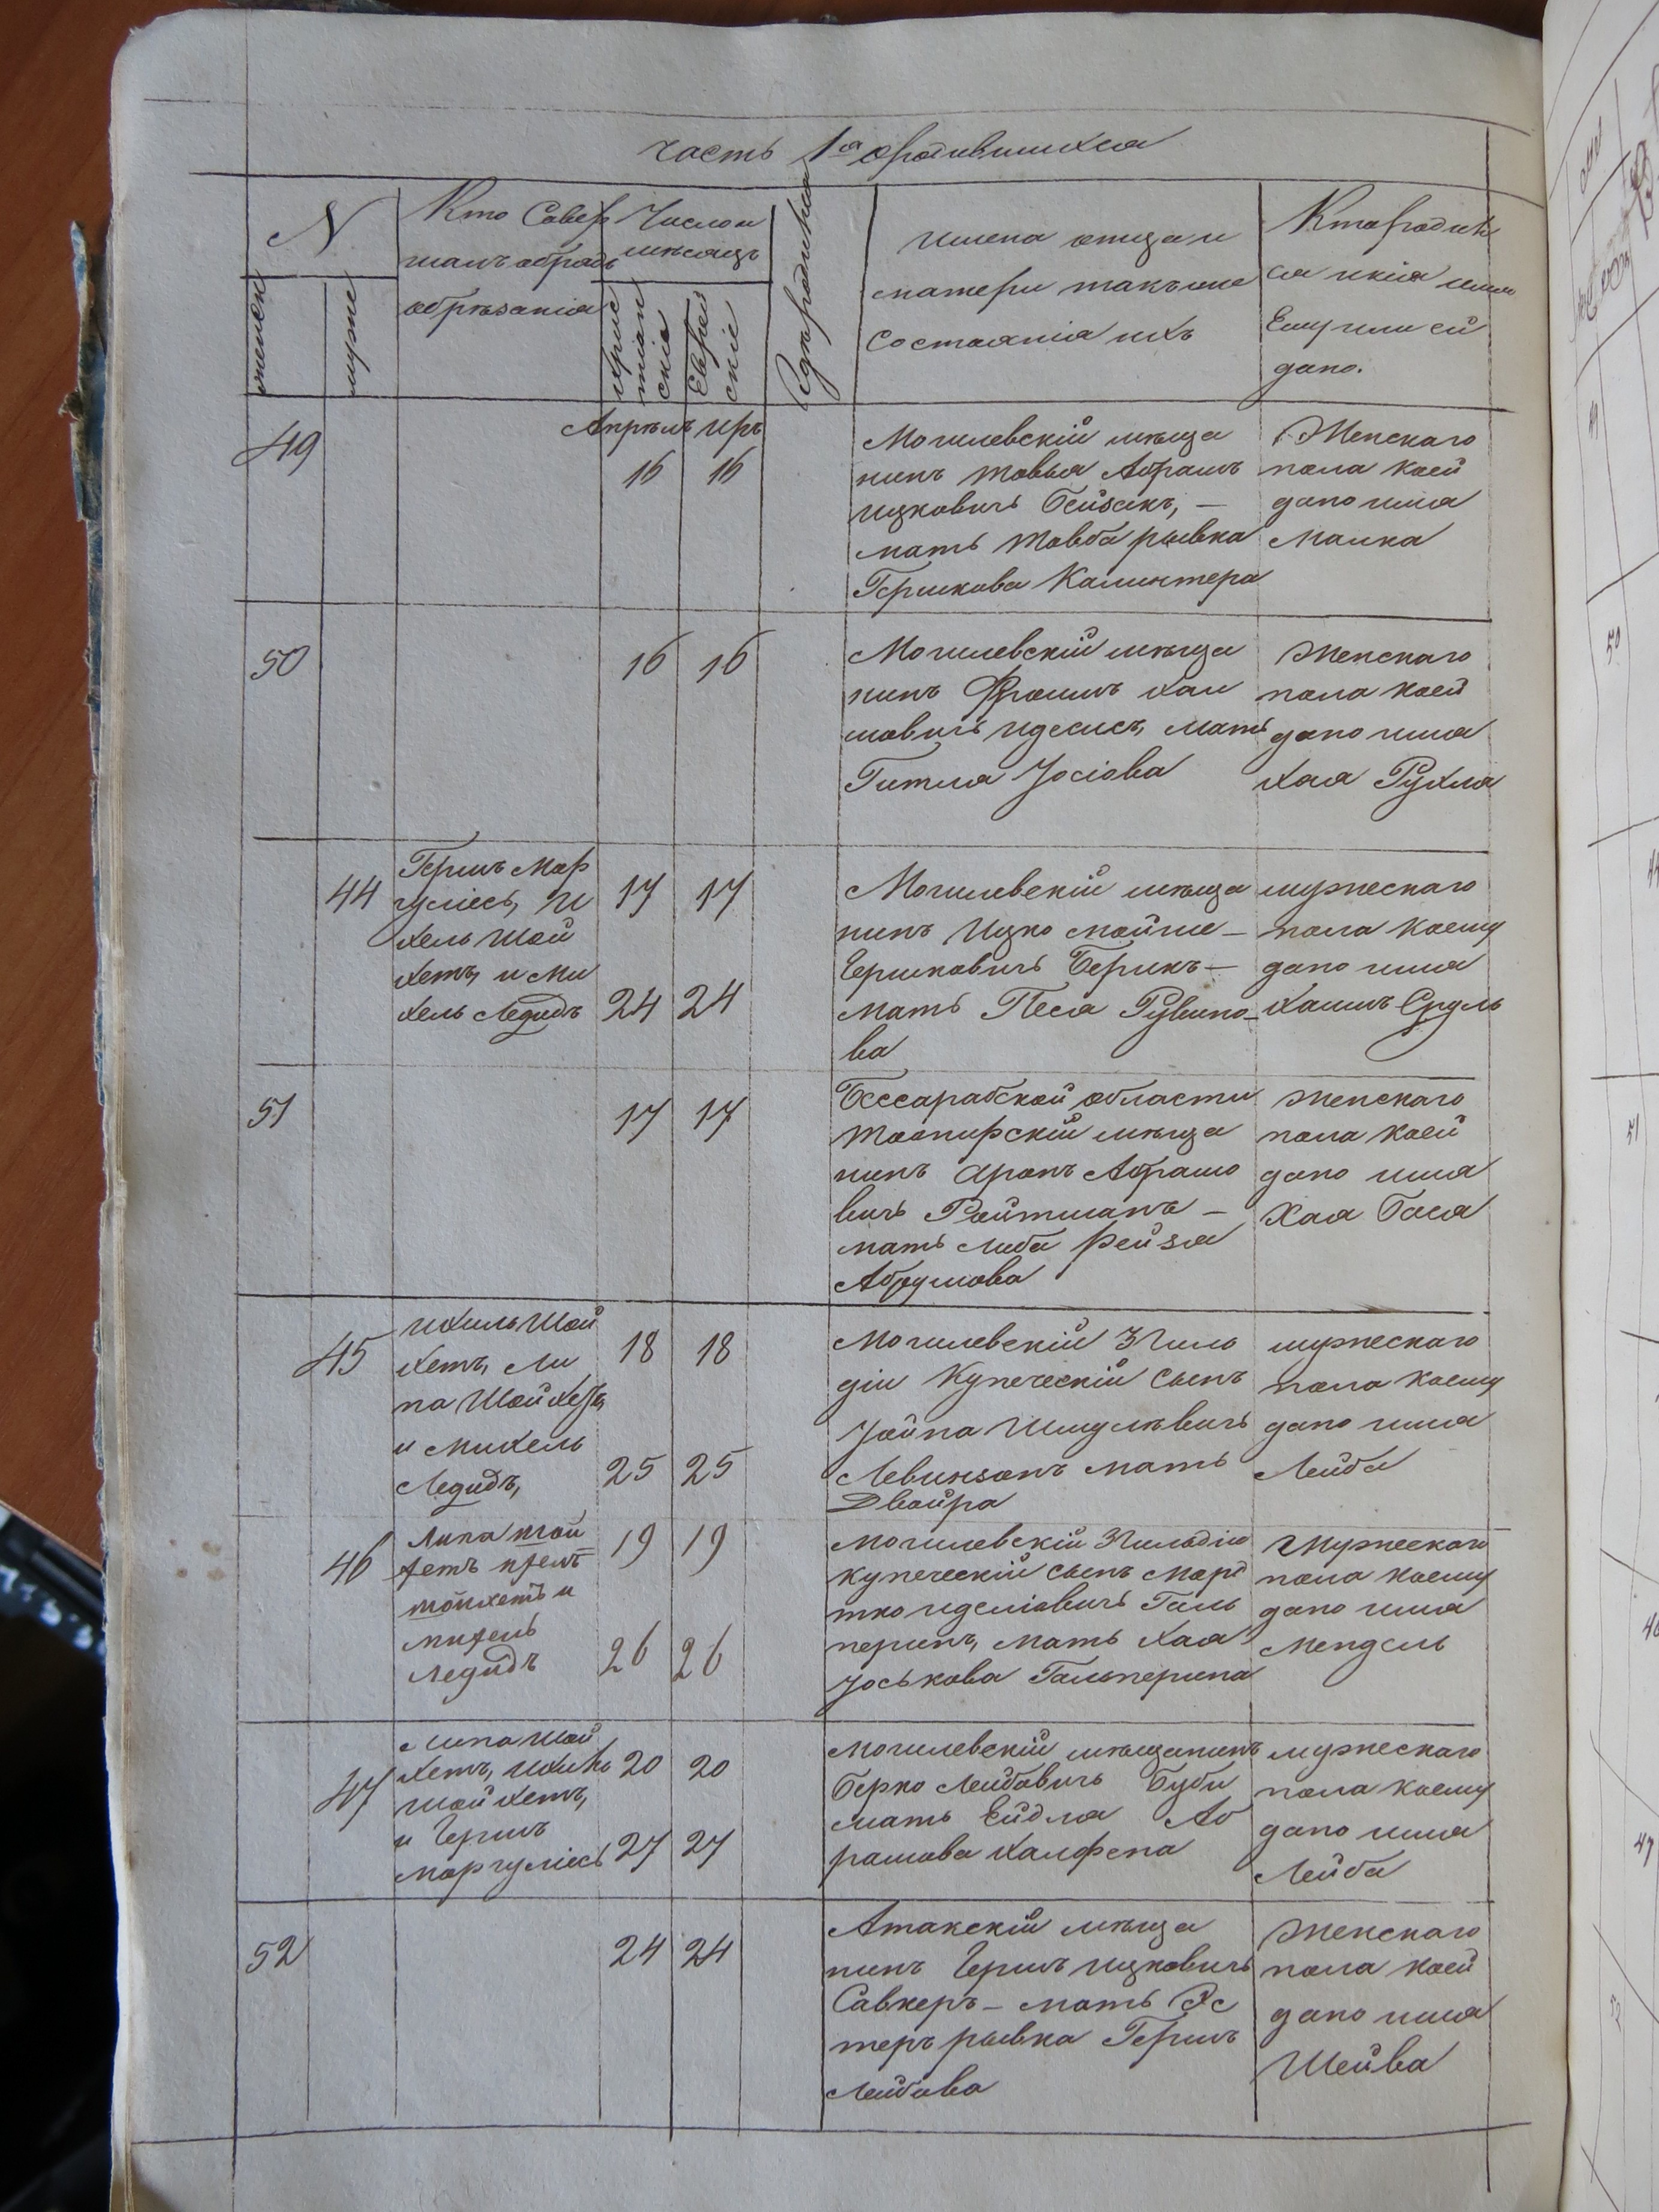 часть 1я о родившихся
N
женск
муже
Кто Совер
шалъ обрядъ
обрѣзанія
Число и
мѣсяцъ
христ
іан
скіе
Еврей
скіе
Гдѣ родился
имена отца и
матери такъ же
Состоянія ихъ
Кто родил
ся и кія имя
Ему или ей
дано.
49
Апрѣль иръ
16 16
Могилевскій мѣща
нинъ товья Абрамъ
ицковичъ Бейзекъ, —
мать товба рывка
Гершкова Калинтера
Женскаго
пола коей
дано имя
Малка
50
16 16
Могилевскій мѣща
нинъ Фроимъ хаи
мовичъ идесисъ, мать
Гитля Іосіова
Женскаго
пола коей
дано имя
хая Рухля
44
Гершъ Мар
гуліесъ, И
хель Шой
хетъ, и Ми
хель Ледидъ
17 17
24 24
Могилевскій мѣща
нинъ Ицко мойше —
Гершковичъ Берикъ —
мать Песя Рувино-
ва
мужескаго
пола коему
дано имя
хаимъ Срулъ
51
17 17
Бессарабской области
мѣща
нинъ аронъ Абрамо
вичъ Ройтманъ —
мать Либа Рейзя
Абрумова
Женскаго
пола коей
дано имя
Хая Бася
45
ихиль Шой
хетъ, Ли
па Шойхетъ,
и михель
Ледидъ,
18 18
25 25
Могилевскій 3 гиль
діи Купеческій Сынъ
Іойна Шмулѣвичъ
Левинзонъ мать
Двойра
мужескаго
пола коему
дано имя
Лейба
46
Липа шой
хетъ
шойхетъ и
михель
Ледидъ
19 19
26 26
могилевскій 3 гильдіи
купеческій сынъ Мор
тко иделіовичъ Галь
перинъ, мать Хая
Іоськова Гальперина
Мужескаго
пола коему
дано имя
Мендель
47
Липа шой
хетъ, ихиль
шойхетъ,
и Гершъ
маргуліесъ
20 20
27 27
могилевскій мѣщанинъ
Берко Лейбовичъ Буби
мать Ейдля Аб
рамова халфена
мужескаго
пола коему
дано имя
Лейба
52
24 24
Атакскій мѣща
нинъ Гершъ ицковичъ
Савкеръ — мать Эс
теръ рывка Гершъ
Лейбова
Женскаго
пола коей
дано имя
Шейва